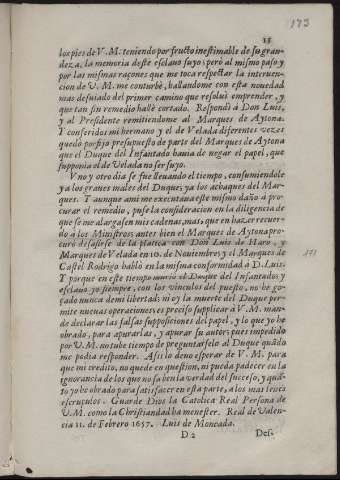 173
15
los pies de V.M. teniendo por fructo inestimable de su gran-
deza, la memoria deste esclavo suyo; però al mismo paso y
por las mismas raçones que me toca respectar la interuen-
cion de V.M. me conturbè, hallandome con esta novedad
mas desuiado del primer camino que resolui emprender, y
que tan sin remedio hallè cortado. Respondì à Don Luis,
y al Presidente remitiendome al Marques de Aytona.
Y conferidos mi hermano y el de Velada diferentes vezes
quedo por fijo presupuesto de parte del Marques de Aytona
que el Duque del Infantado hauia de negar el papel, que
supponia el de Velada no ser suyo.
Vno y otro dia se fue lleuando el tiempo, consumiendole
ya los granes males del Duque, ya los achaques del Mar-
ques. Y aunque ami me executaua este mismo daño à pro-
curar el remedio, puse la consideracion en la diligencia de
que se me alargasen mis cadenas, mas que en hazer recuer-
do à los Ministros, antes bien el Marques de Aytona pro-
curò desasirse de la platica con Don Luis de Haro, y
Marques de Velada en 10. de Nouiembre, y el Marques de
171
Castel Rodrigo hablò en la misma conformidad à D. Luis.
Y porque en este tiempo murió el Duque del Infantados y
esclauo yo siempre, con los vinculos del puesto, no he go-
çado nunca de mi libertad; ni oy la muerte del Duque per-
mite nueuas operaciones, es preciso supplicar à V.M. man-
de declarar las falsas supposiciones del papel, y lo que yo he
obrado, para apurarlas, y apurar su autor; pues impedido
por V.M. no tube tiempo de preguntarselo al Duque quãdo
me podia responder. Assi lo deuo esperar de V.M. para
que mi credito, no quede en question, ni pueda padecer en la
ignorancia de los que no saben la verdad del successo, y quã-
to yo he obrado para satisfacer en esta parte, a los mas leues
escrupulos. Guarde Dios la Catolica Real Persona de
V.M. como la Christiandad ha menester. Real de Valen-
cia 11. de Febrero 1657. Luis de Moncada.
D 2 Des-